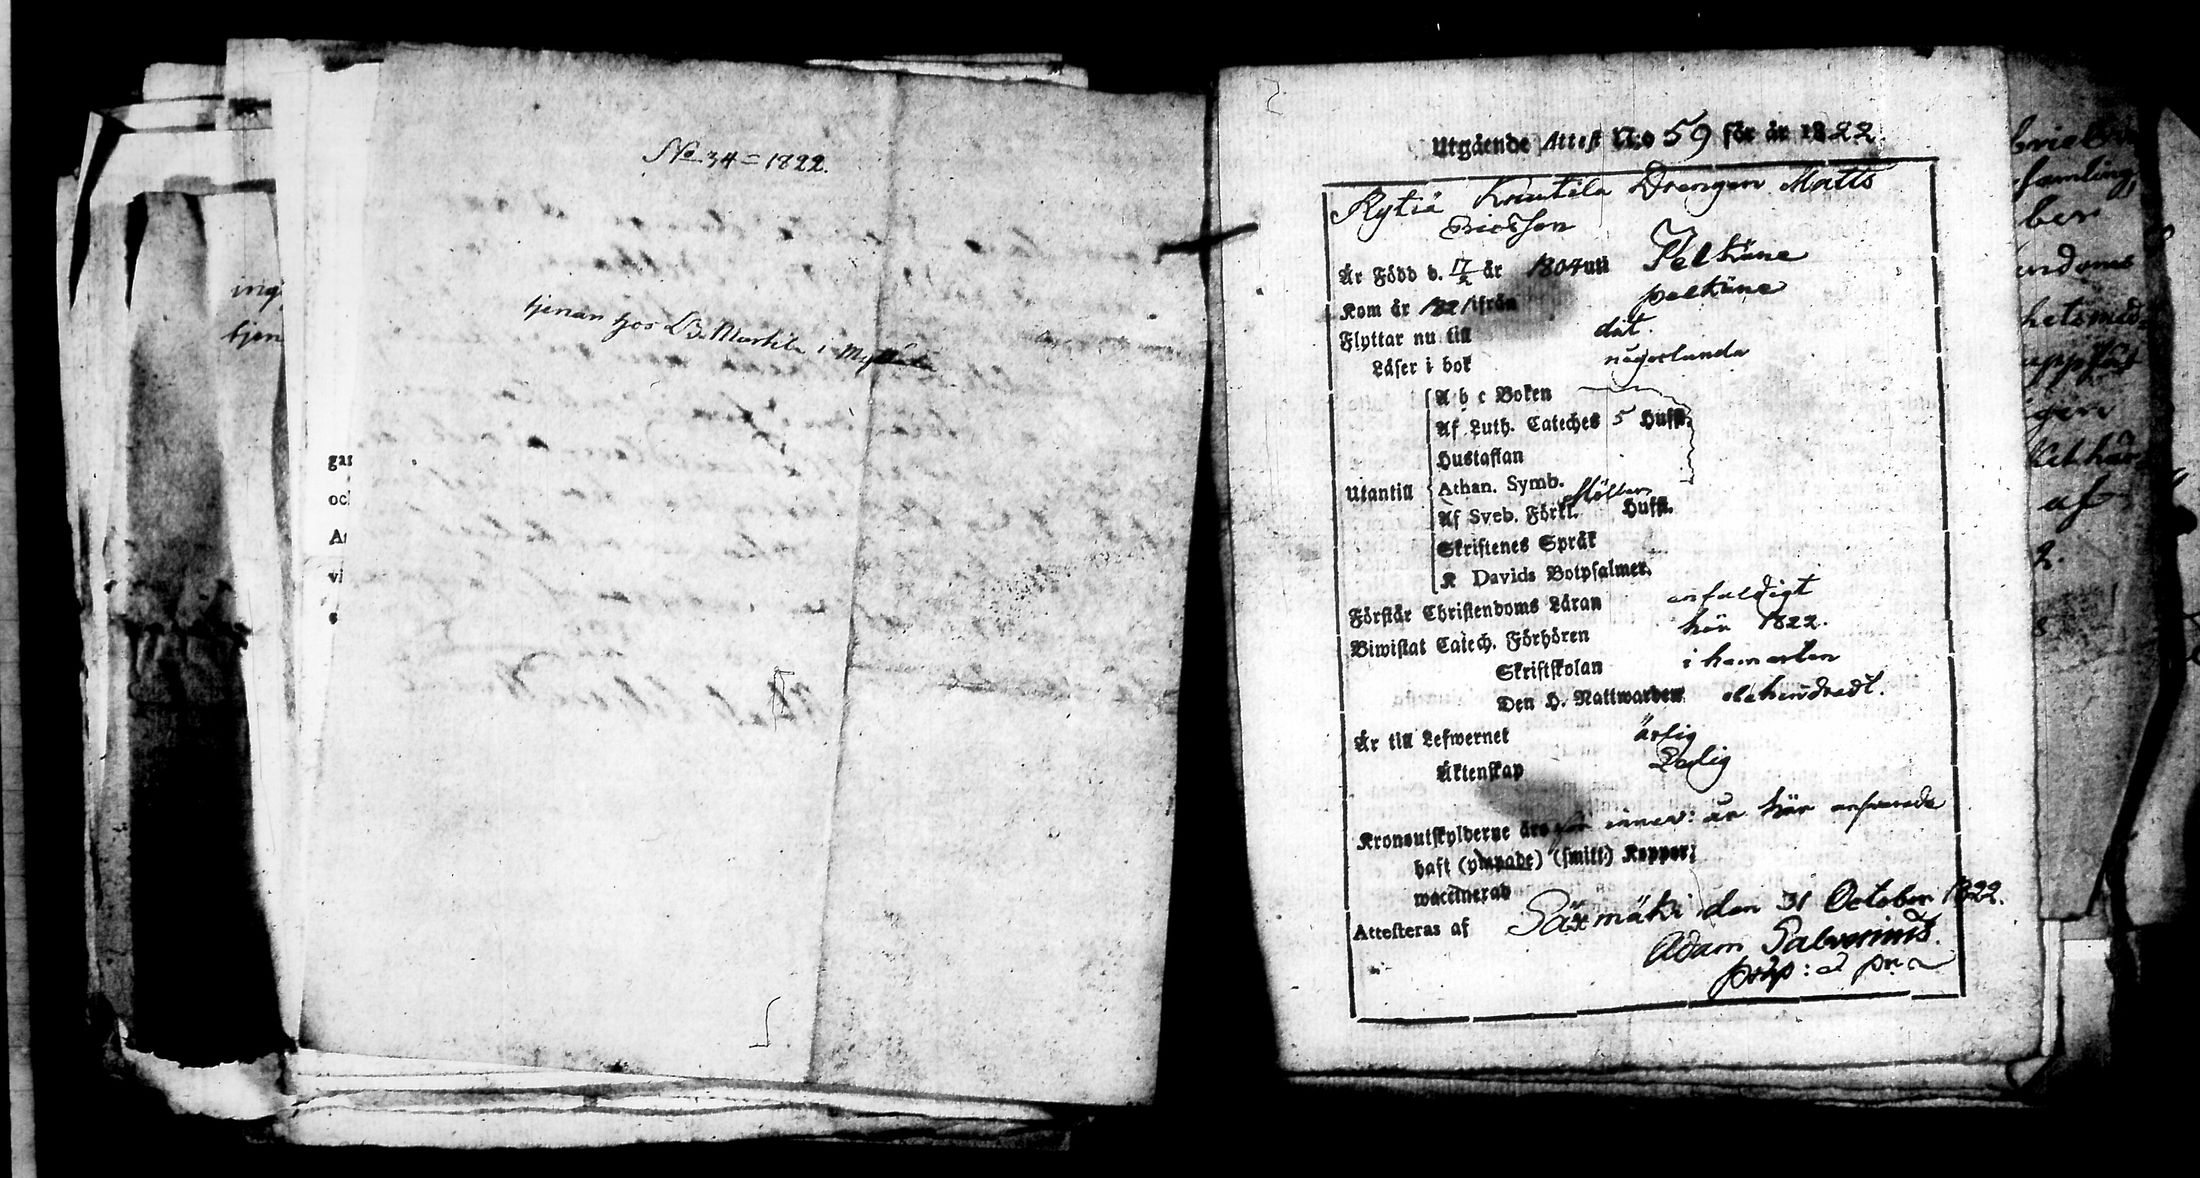 No 34 = 1822.
tjenar hos B. Marttila i
Utgående Attest N:o 59 för år 1822.
Rytiä Knutila Drengen Matts
Ericsson
Är Född d. 17/2 år 1804 uti Pelkäne
Kom år 1821 ifrån pelkäne
Flyttar nu till dit.
Läser i bok någorlunda
A b c Boken
Af Luth. Cateches 5 Hufst.
Hustaflan
Utantill Athan. Symb.
Af Sveb. Förkl. Hufst.
Skriftenes Språk
K Davids Botpsalmer.
Förstår Christendoms Läran enfaldigt
Biwistat Catech. Förhören här 1822.
Skriftskolan i hemorten
Den H. Nattwarden obehindradt.
Är till Lefwernet ärlig
Äktenskap Ledig
Kronoutskylderne äro för innev: år här
haft (ympade) (smitt.) Koppor,
waccinerad
Attesteras af Säxmäki den 31 October 1822.
Adam Salvenius.
pråp: &
ing
tjen
gar
och
vi
af
2.
8